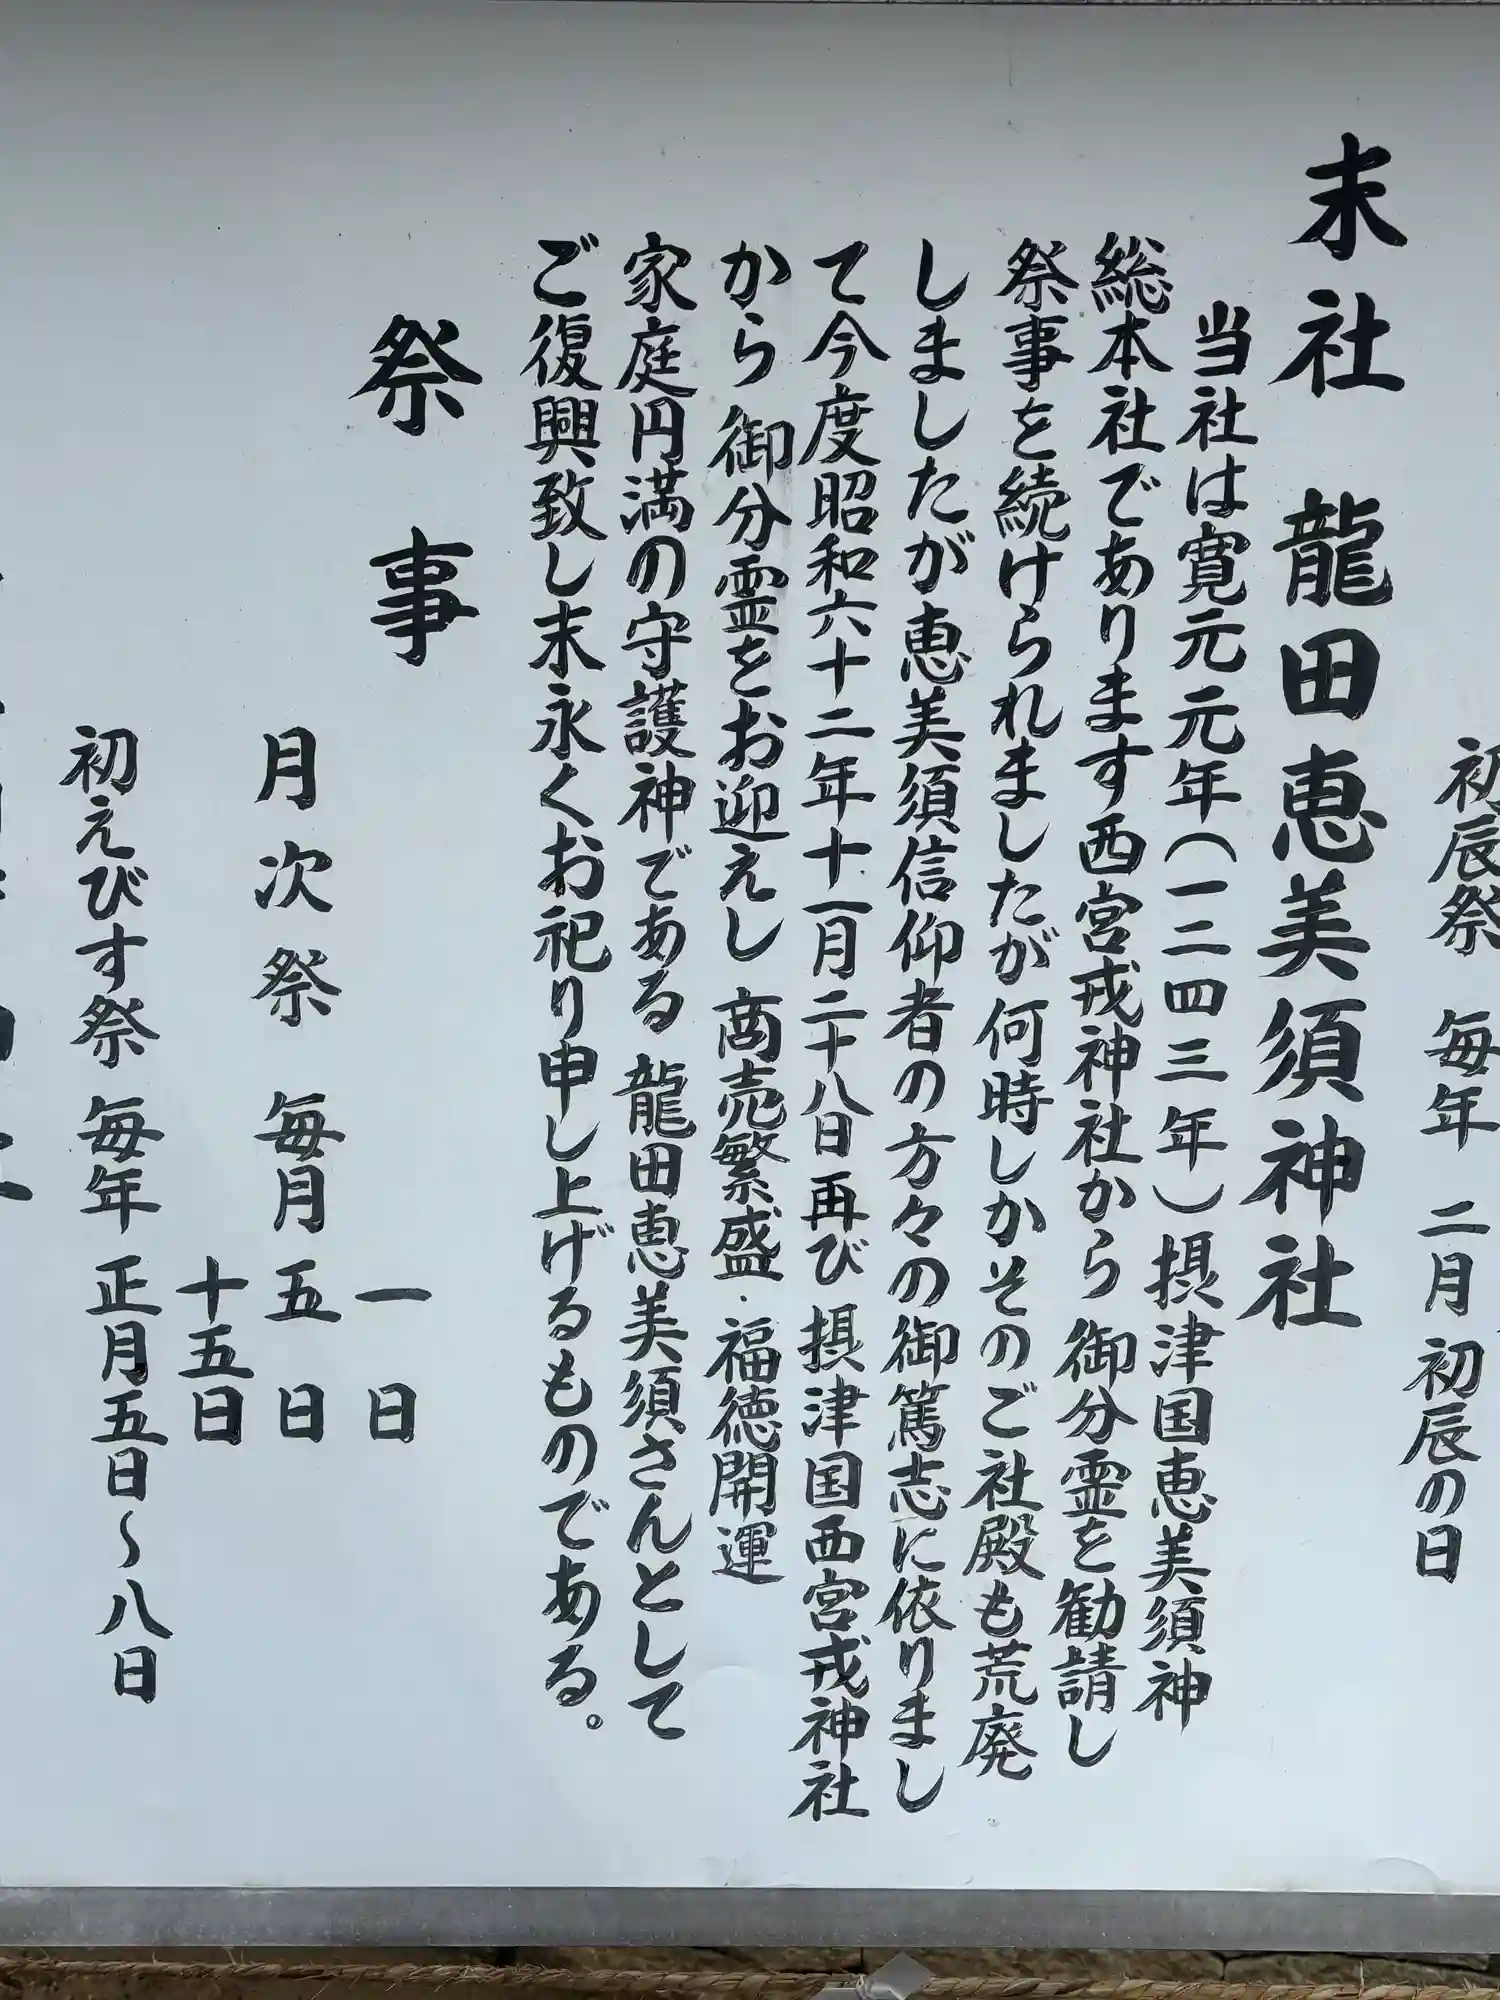 初辰祭　毎年　二月初辰の日
末社　龍田恵美須神社
当社は寛元元年（一二四三年）摂津国恵美須神
総本社であります西宮戎神社から御分霊を勧請し
祭事を続けられましたが何時しかそのご社殿も荒廃
しましたが恵美須信仰者の方々の御篤志に依りまし
て今度昭和六十二年十一月二十八日再び摂津国西宮戎神社
から御分霊をお迎えし商売繁盛・福徳開運
家庭円満の守護神である龍田恵美須さんとして
ご復興致し末永くお祀り申し上げるものである。
祭事
一日
月次祭　毎月　五日
十五日
初えびす祭　毎年　正月五日～八日